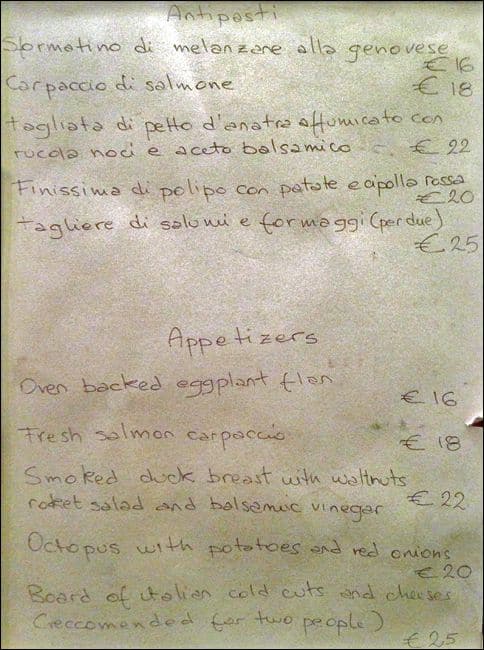 Antipasti
Sformatino di melanzane alla genovese
€ 16
Carpaccio di salmone
€ 18
tagliata di petto d'anatra affumicato con
rucola noci e aceto balsamico € 22
Finissima di polipo con patate e cipolla rossa
€ 20
tagliere di salumi e formaggi (per due)
€ 25
Appetizers
Oven backed eggplant flan
€ 16
Fresh salmon carpaccio
€ 18
Smoked duck breast with wallnuts
roket salad and balsamic vinegar € 22
Octopus with potatoes and red onions
€ 20
Board of italian cold cuts and cheeses
(reccomended for two people)
€ 25